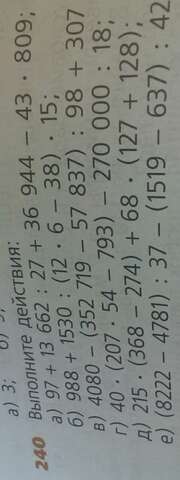 а) 3; б) 5;
240 Выполните действия:
а) 97 + 13 662 : 27 + 36 944 – 43 · 809;
б) 988 + 1530 : (12 · 6 – 38) · 15;
в) 4080 – (352 719 – 57 837) : 98 + 307
г) 40 · (207 · 54 – 793) – 270 000 : 18;
д) 215 · (368 – 274) + 68 · (127 + 128);
е) (8222 – 4781) : 37 – (1519 – 637) : 42